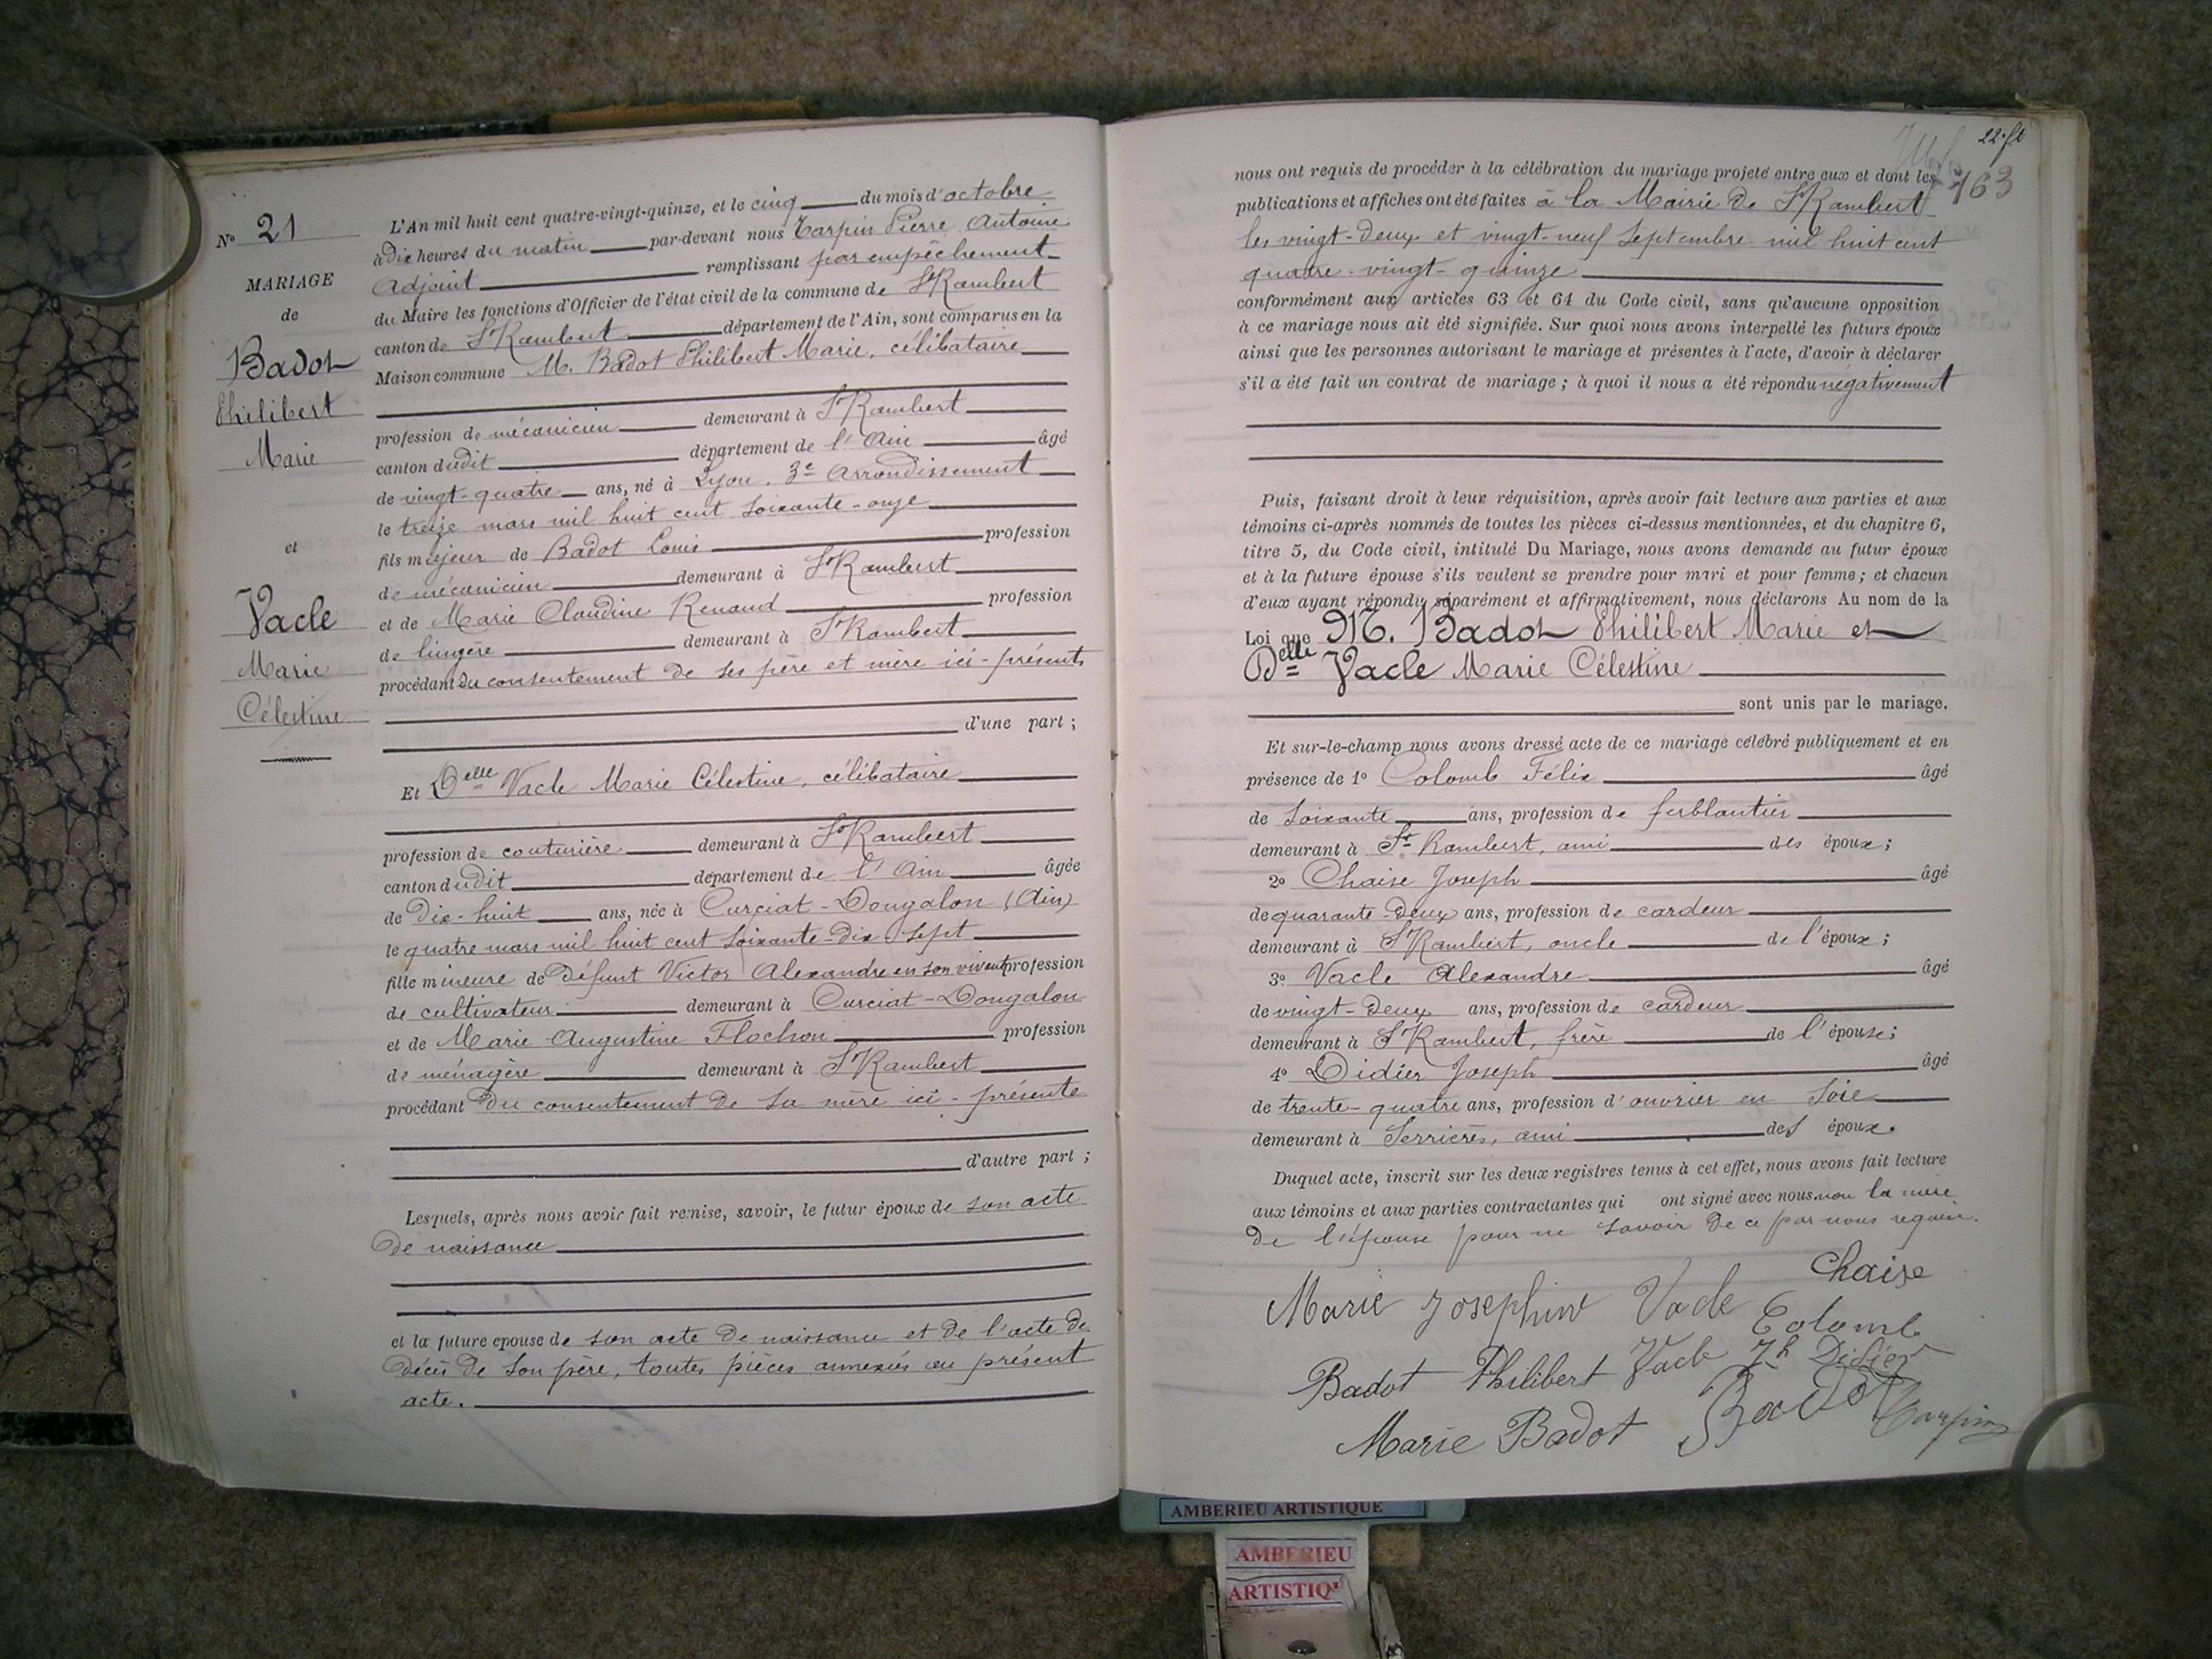 N° 21
MARIAGE
de
Badot
Philibert
Marie
et
Vacle
Marie
Célestine
L'An mil huit cent quatre-vingt-quinze, et le cinq du mois d'octobre
à dix heures du matin par-devant nous Tarpin Pierre Antoine
adjoint remplissant par empêchement
du Maire les fonctions d'Officier de l'état civil de la commune de St Rambert
canton de St Rambert département de l'Ain, sont comparus en la
Maison commune M. Badot Philibert Marie, célibataire
profession de mécanicien demeurant à St Rambert
canton dudit département de l'Ain âgé
de vingt-quatre ans, né à Lyon, 3e arrondissement
le treize mars mil huit cent soixante-onze
fils majeur de Badot Louis profession
de mécanicien demeurant à St Rambert
et de Marie Claudine Renaud profession
de lingère demeurant à St Rambert
procédant du consentement de ses père et mère ici-présents
d'une part ;
Et Delle Vacle Marie Célestine, célibataire
profession de couturière demeurant à St Rambert
canton dudit département de l'Ain âgée
de dix-huit ans, née à Curciat-Dongalon (Ain)
le quatre mars mil huit cent soixante-dix-sept
fille mineure de défunt Victor Alexandre en son vivant profession
de cultivateur demeurant à Curciat-Dongalon
et de Marie Augustine Flochon profession
de ménagère demeurant à St Rambert
procédant du consentement de sa mère ici-présente
d'autre part ;
Lesquels, après nous avoir fait remise, savoir, le futur époux de son acte
de naissance
et la future épouse de son acte de naissance et de l'acte de
décès de son père, toutes pièces annexées au présent
acte.
22e ft
163
nous ont requis de procéder à la célébration du mariage projeté entre eux et dont les
publications et affiches ont été faites à la Mairie de St Rambert
les vingt-deux et vingt-neuf septembre mil huit cent
quatre-vingt-quinze
conformément aux articles 63 et 64 du Code civil, sans qu'aucune opposition
à ce mariage nous ait été signifiée. Sur quoi nous avons interpellé les futurs époux
ainsi que les personnes autorisant le mariage et présentes à l'acte, d'avoir à déclarer
s'il a été fait un contrat de mariage ; à quoi il nous a été répondu négativement
Puis, faisant droit à leur réquisition, après avoir fait lecture aux parties et aux
témoins ci-après nommés de toutes les pièces ci-dessus mentionnées, et du chapitre 6,
titre 5, du Code civil, intitulé Du Mariage, nous avons demandé au futur époux
et à la future épouse s'ils veulent se prendre pour mari et pour femme ; et chacun
d'eux ayant répondu séparément et affirmativement, nous déclarons Au nom de la
Loi que M. Badot Philibert Marie et
Delle Vacle Marie Célestine
sont unis par le mariage.
Et sur-le-champ nous avons dressé acte de ce mariage célébré publiquement et en
présence de 1° Colomb Félix âgé
de soixante ans, profession de ferblantier
demeurant à St Rambert, ami des époux ;
2° Chaise Joseph âgé
de quarante-deux ans, profession de cardeur
demeurant à St Rambert, oncle de l'époux ;
3° Vacle Alexandre âgé
de vingt-deux ans, profession de cardeur
demeurant à St Rambert, frère de l'épouse ;
4° Didier Joseph âgé
de trente-quatre ans, profession d'ouvrier en soie
demeurant à Serrières, ami des époux.
Duquel acte, inscrit sur les deux registres tenus à cet effet, nous avons fait lecture
aux témoins et aux parties contractantes qui ont signé avec nous non la mère
de l'épouse pour ne savoir de ce par nous requise.
Marie Josephine Vacle Chaise
Colomb
Badot Philibert Vacle Jh Didier
Marie Badot Badot Tarpin
AMBERIEU ARTISTIQUE
AMBERIEU
ARTISTIQ